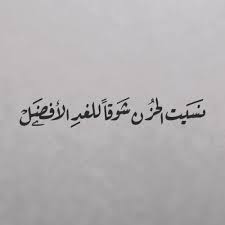 نسيت الحُزن شَوقاً للغدِ الأفضَلْ